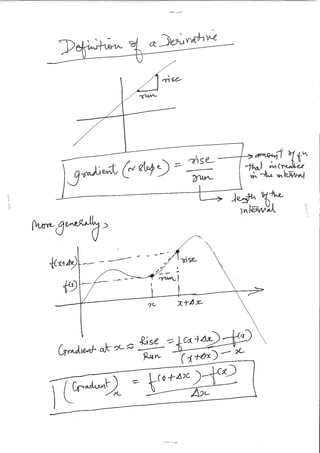 Definition of a Derivative
rise
run
gradient (or slope) = rise / run
→ amount of fn
that increases
in the interval
→ length of the
interval
More generally,
f(x+Δx)
f(x)
rise
run
x x+Δx
Gradient at x ≈ Rise / Run = f(x+Δx) - f(x) / (x+Δx) - x
(Gradient)x = f(x+Δx) - f(x) / Δx